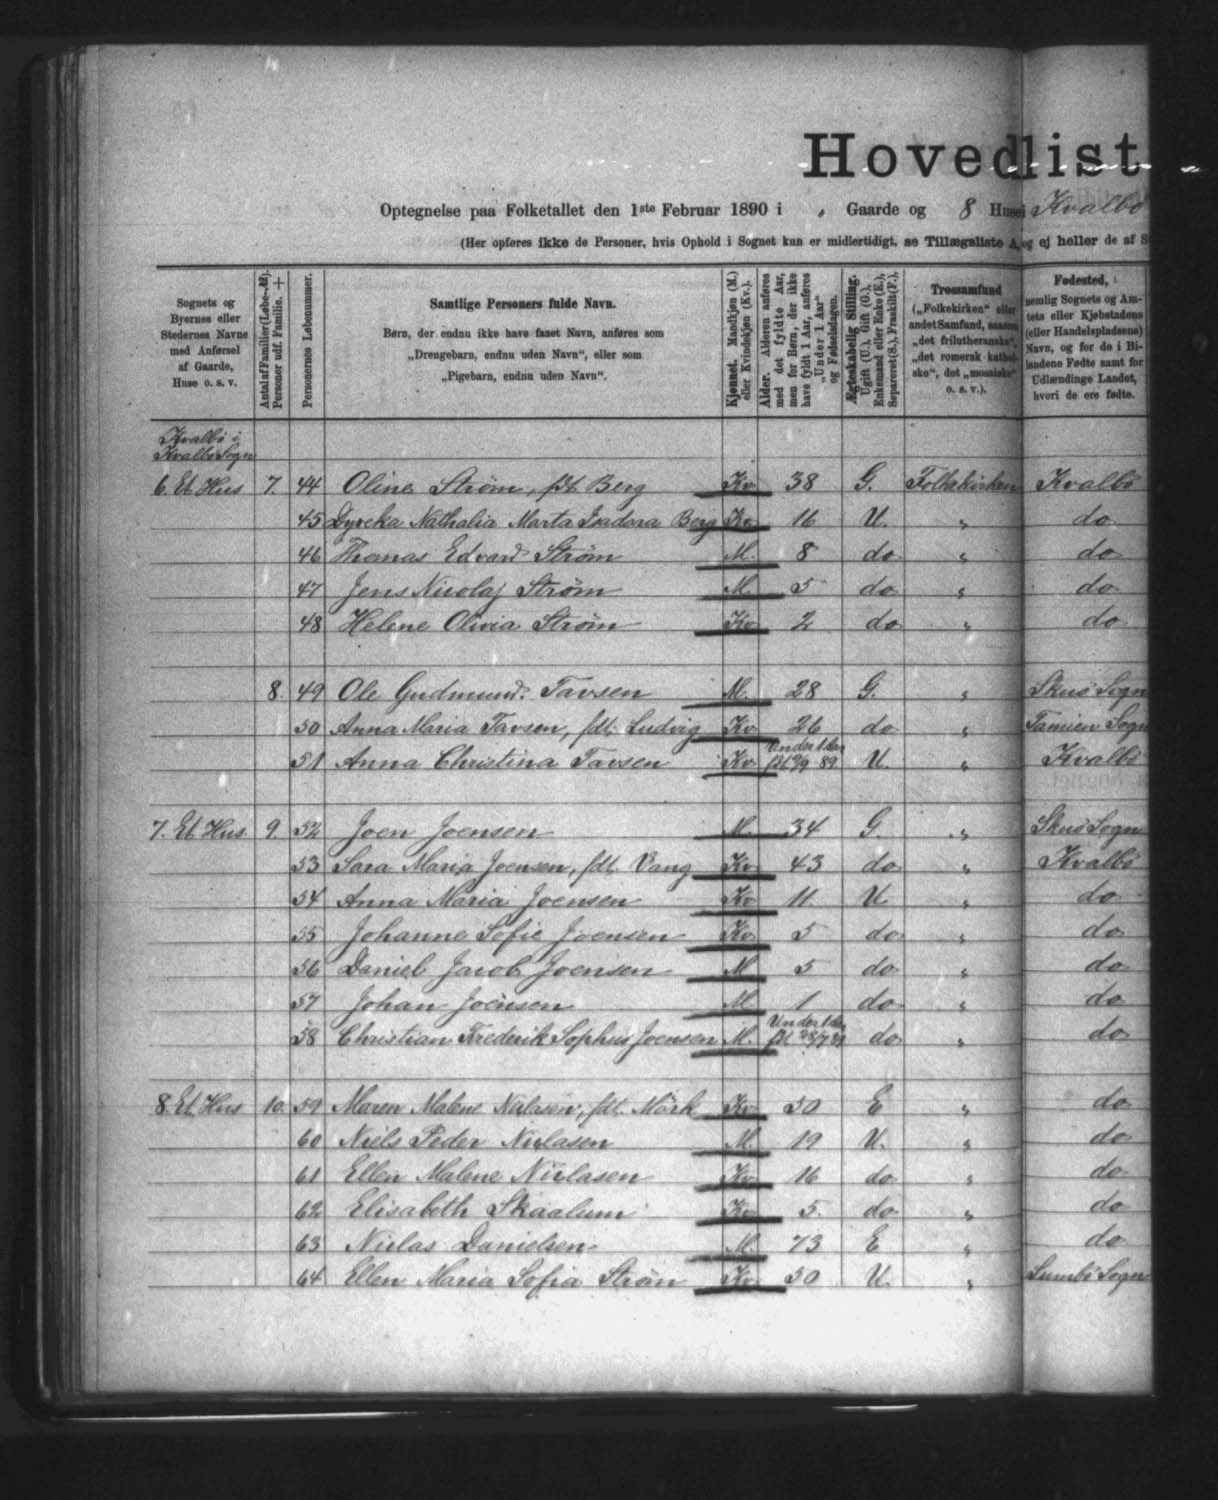 Hovedlist
Optegnelse paa Folketallet den 1ste Februar 1890 i „ Gaarde og 8 Huse i Kvalbö
(Her opføres ikke de Personer, hvis Ophold i Sognet kun er midlertidigt, se Tillægsliste A, og ej heller de af S
Sognets og Byernes eller Stedernes Navne med Anførsel af Gaarde, Huse o. s. v.
Antal af Familier (Løbe-№). Personer udf. Familie. +
Personernes Løbenummer.
Samtlige Personers fulde Navn.
Børn, der endnu ikke have faaet Navn, anføres som
„Drengebarn, endnu uden Navn“, eller som
„Pigebarn, endnu uden Navn“.
Kjønnet. Mandkjøn (M.) eller Kvindekjøn (Kv.).
Alder. Alderen anføres med det fyldte Aar, men for Børn, der ikke have fyldt 1 Aar, anføres „Under 1 Aar“ og Fødselsdagen.
Ægteskabelig Stilling. Ugift (U.), Gift (G.), Enkemand eller Enke (E.), Separeret (S.), Fraskilt (F.).
Trossamfund („Folkekirken“ eller andet Samfund, saasom „det frilutheranske“, „det romersk katholske“, det „mosaiske“ o. s. v.).
Fødested, nemlig Sognets og Amtets eller Kjøbstadens (eller Handelspladsens) Navn, og for de i Bilandene Fødte samt for Udlændinge Landet, hvori de ere fødte.
Kvalbö i
Kvalbö Sogn
6. Et Hus 7. 44 Oline Ström, fdt. Berg Kv. 38 G. Folkekirken Kvalbö
45 Dyveka Nathalia Marta Isadora Berg Kv. 16 U. „ do
46 Thomas Edvard Ström M. 8 do „ do
47 Jens Nicolaj Ström M. 5 do „ do
48 Helene Olivia Ström Kv. 2 do „ do
8. 49 Ole Gudmund Tavsen M. 28 G. „ Skuö Sogn
50 Anna Maria Tavsen, fdt. Ludvig Kv. 26 do „ Sogn
51 Anna Christina Tavsen Kv. Under 1 Aar fdt. 9/9 89. U. „ Kvalbö
7. Et Hus 9. 52 Joen Joensen M. 34 G. „ Skuö Sogn
53 Sara Maria Joensen, fdt. Vang Kv. 43 do „ Kvalbö
54 Anna Maria Joensen Kv. 11 U. „ do
55 Johanne Sofie Joensen Kv. 5 do „ do
56 Daniel Jacob Joensen M. 5 do „ do
57 Johan Joensen M. 1 do „ do
58 Christian Frederik Sophus Joensen M. Under 1 Aar fdt. 28/7 89 do „ do
8. Et Hus 10. 59 Maren Malene Niclasen, fdt. Mörk Kv. 50 E. „ do
60 Niels Peder Niclasen M. 19 U. „ do
61 Ellen Malene Niclasen Kv. 16 do „ do
62 Elisabeth Skaalum Kv. 5 do „ do
63 Niclas Danielsen M. 73 E „ do
64 Ellen Maria Sofia Ström Kv. 50 U. „ Sumbö Sogn